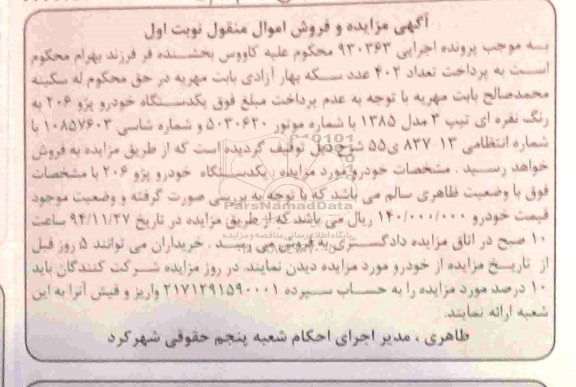 آگهی مزایده و فروش اموال منقول نوبت اول
به موجب پرونده اجرایی ۹۳۰۳۶۳ محکوم علیه کاووس بخشنده فر فرزند بهرام محکوم
است به پرداخت تعداد ۴۰۲ عدد سکه بهار آزادی بابت مهریه در حق محکوم له سکینه
محمدصالح بابت مهریه با توجه به عدم پرداخت مبلغ فوق یکدستگاه خودرو پژو ۲۰۶ به
رنگ نقره ای تیپ ۳ مدل ۱۳۸۵ با شماره موتور ۵۰۳۰۶۲۰ و شماره شاسی ۱۰۸۵۷۶۰۳ با
شماره انتظامی ۱۳ ۸۳۷ی۵۵ توقیف گردیده است که از طریق مزایده به فروش
خواهد رسید . مشخصات خودرو مورد مزایده : یکدستگاه خودرو پژو ۲۰۶ با مشخصات
فوق با وضعیت ظاهری سالم می باشد که با توجه به بررسی صورت گرفته و وضعیت موجود
قیمت خودرو ۱۴۰/۰۰۰/۰۰۰ ریال می باشد که از طریق مزایده در تاریخ ۹۴/۱۱/۲۷ ساعت
۱۰ صبح در اتاق مزایده دادگستری به فروش می رسد . خریداران می توانند ۵ روز قبل
از تاریخ مزایده از خودرو مورد مزایده دیدن نمایند. در روز مزایده شرکت کنندگان باید
۱۰ درصد مورد مزایده را به حساب سپرده ۲۱۷۱۲۹۱۵۹۰۰۰۱ واریز و فیش آنرا به این
شعبه ارائه نمایند.
طاهری ، مدیر اجرای احکام شعبه پنجم حقوقی شهرکرد
ParsNamadData
پایگاه اطلاع رسانی مناقصه و مزایده